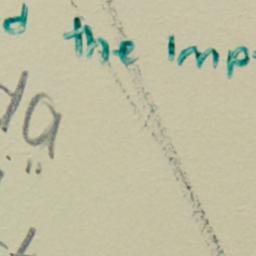 d the Imp
ya